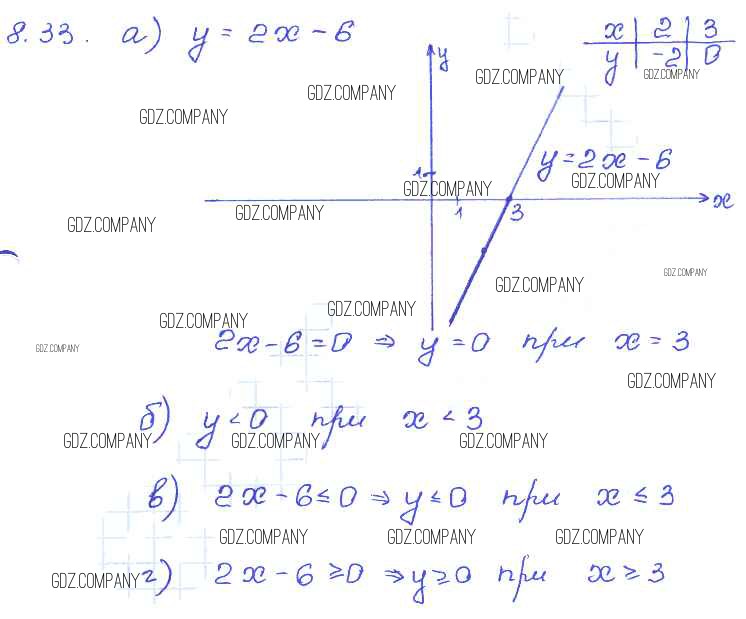 8.33. а) y = 2x - 6
x | 2 | 3
y | -2 | 0
y
GDZ.COMPANY GDZ.COMPANY
GDZ.COMPANY
GDZ.COMPANY
y = 2x - 6
1 GDZ.COMPANY GDZ.COMPANY
1 3 x
GDZ.COMPANY GDZ.COMPANY
GDZ.COMPANY GDZ.COMPANY
GDZ.COMPANY GDZ.COMPANY
2x - 6 = 0 ⇒ y = 0 при x = 3
GDZ.COMPANY
GDZ.COMPANY
б) y < 0 при x < 3
GDZ.COMPANY GDZ.COMPANY GDZ.COMPANY
в) 2x - 6 ≤ 0 ⇒ y ≤ 0 при x ≤ 3
GDZ.COMPANY GDZ.COMPANY GDZ.COMPANY
GDZ.COMPANY г) 2x - 6 ≥ 0 ⇒ y ≥ 0 при x ≥ 3